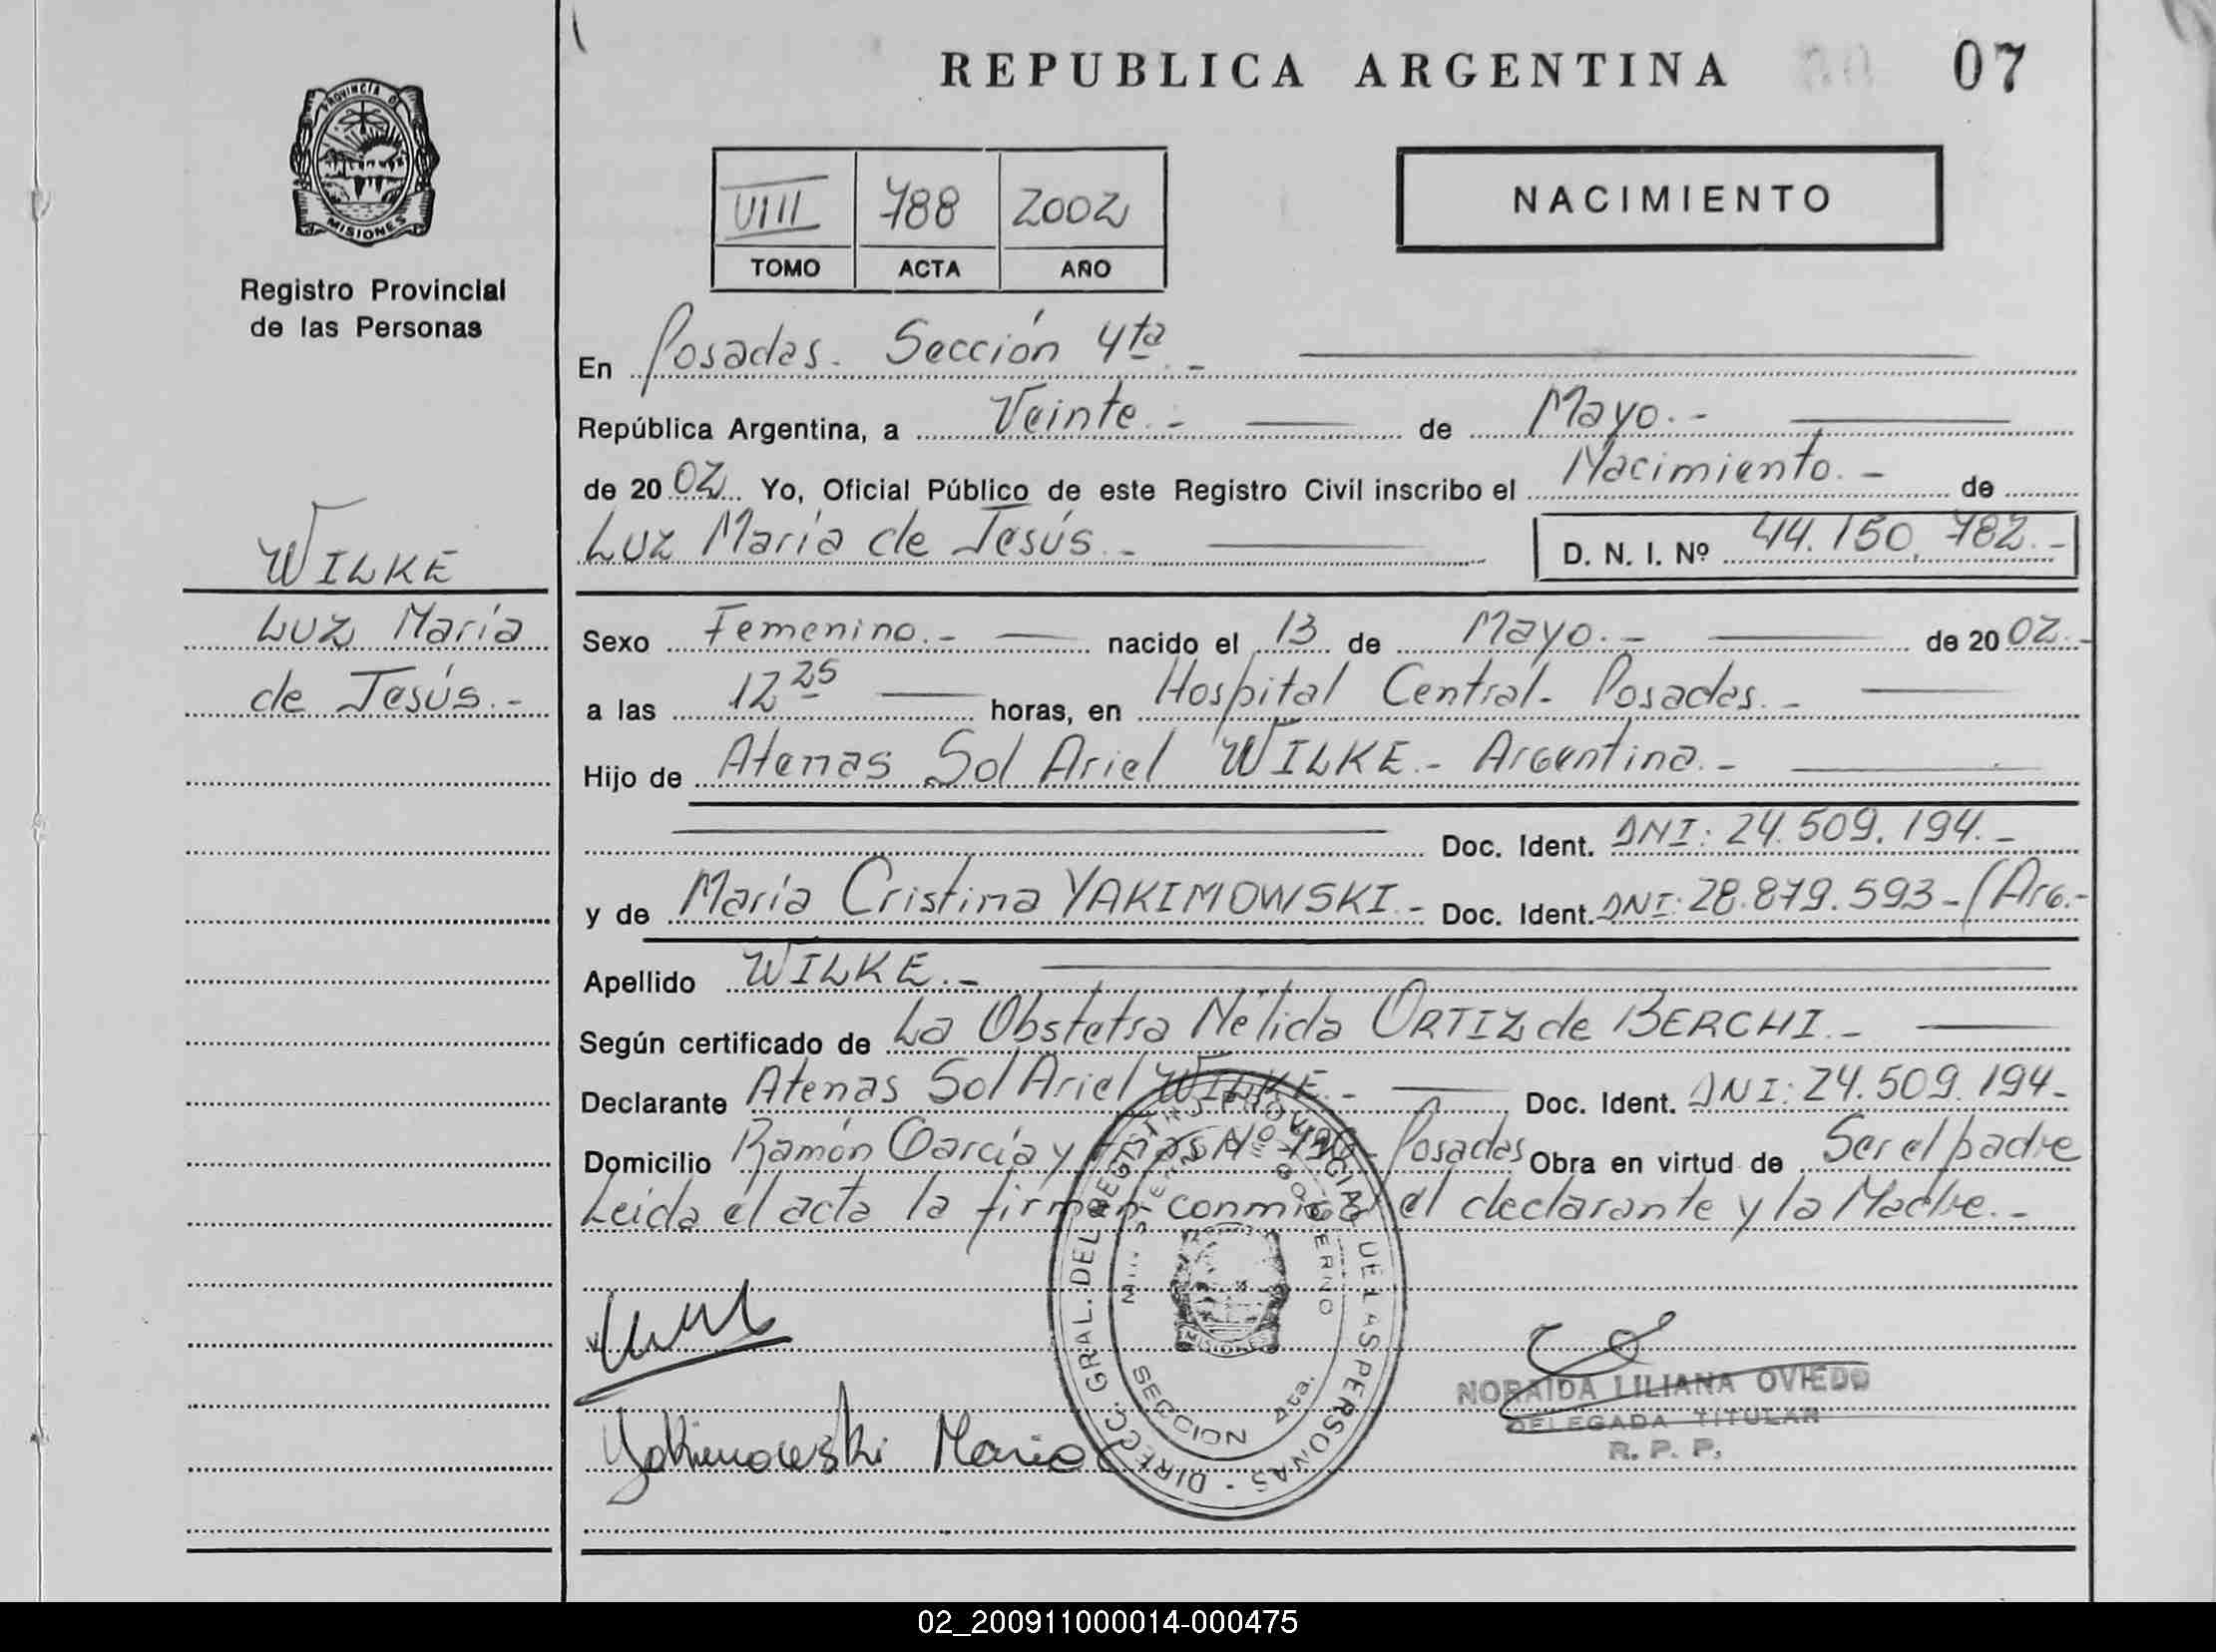 REPUBLICA ARGENTINA
07
PROVINCIA DE
MISIONES
Registro Provincial
de las Personas
VIIII 788 2002
TOMO ACTA AÑO
NACIMIENTO
En Posadas. Sección 4ta.-
República Argentina, a Veinte.- de Mayo.-
de 2002. Yo, Oficial Público de este Registro Civil inscribo el Nacimiento.- de
Luz María de Jesús.- D. N. I. Nº 44.150.782.-
WILKE
Luz María
de Jesús.-
Sexo Femenino.- nacido el 13 de Mayo.- de 2002.-
a las 12 25 horas, en Hospital Central- Posadas.-
Hijo de Atenas Sol Ariel WILKE.- Argentina.-
Doc. Ident. DNI: 24.509.194.-
y de María Cristina YAKIMOWSKI.- Doc. Ident. DNI: 28.879.593-(Arg.-
Apellido WILKE.-
Según certificado de La Obstetra Nélida ORTIZ de BERCHI.-
Declarante Atenas Sol Ariel WILKE.- Doc. Ident. DNI: 24.509.194-
Domicilio Ramón García y Nº Posadas Obra en virtud de Ser el padre
Leida el acta la firman conmigo el declarante y la Madre.-
DIRECC. GRAL. DEL REGISTRO PROVINCIAL DE LAS PERSONAS
MINISTERIO DE GOBIERNO
MISIONES
SECCION 4ta.
Yakimowski Maria C
NORAIDA LILIANA OVIEDO
DELEGADA TITULAR
R. P. P.
02_200911000014-000475